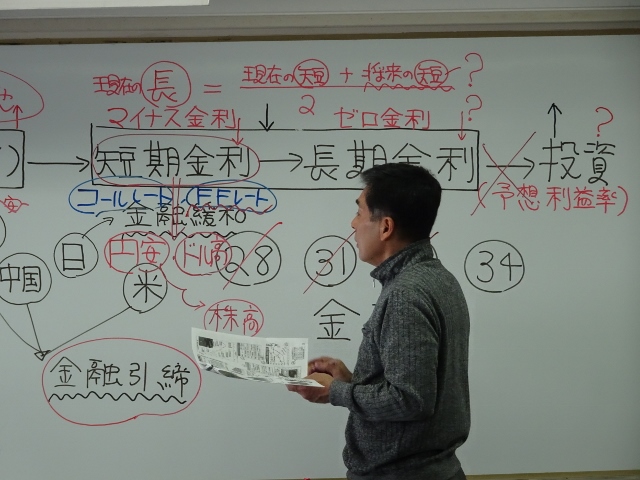 現在の長 = 現在の短 + 将来の短 ?
2
マイナス金利 ゼロ金利 ?
短期金利 → 長期金利 → 投資 ?
コールレート FFレート (予想利益率)
金融緩和
日 円安 ドル高 28 31 34
中国 米
株高 金
金融引締